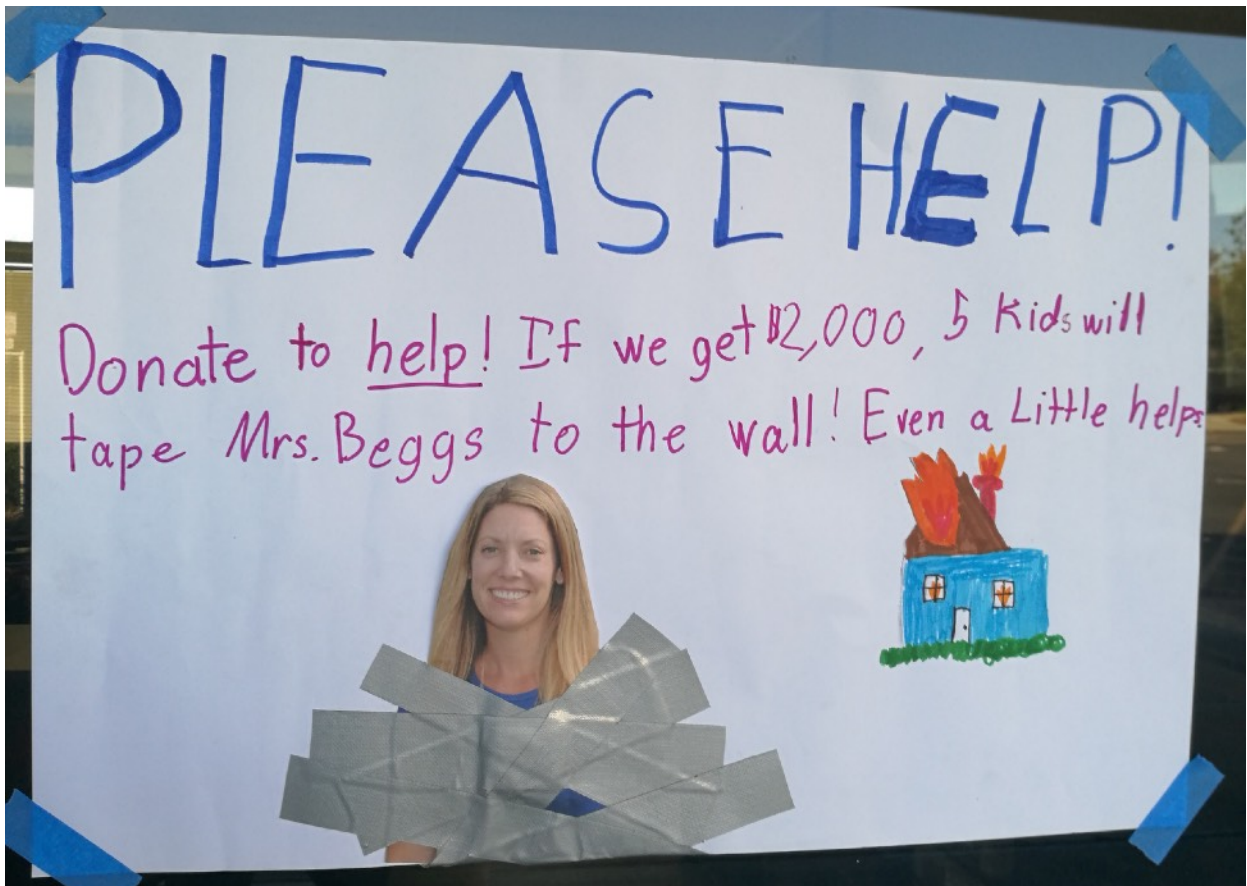 PLEASE HELP!
Donate to help! If we get $2,000, 5 Kids will
tape Mrs. Beggs to the wall! Even a Little helps.